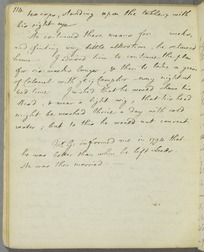 114. tea cups, standing upon the table, with
his right eye
He continued these means for weeks,
and finding very little alteration, he returned
home. I desired him to continue the plan
for six weeks longer, & then to take a grain
of Calomel with five Camphor every night at
bed time. I wished that he would shave his
Head, & wear a light wig, that his head
might be washed thrice a day with cold
water, but to this he would not consent.
informed me in 1794 that
he was better than when he left
He was then married